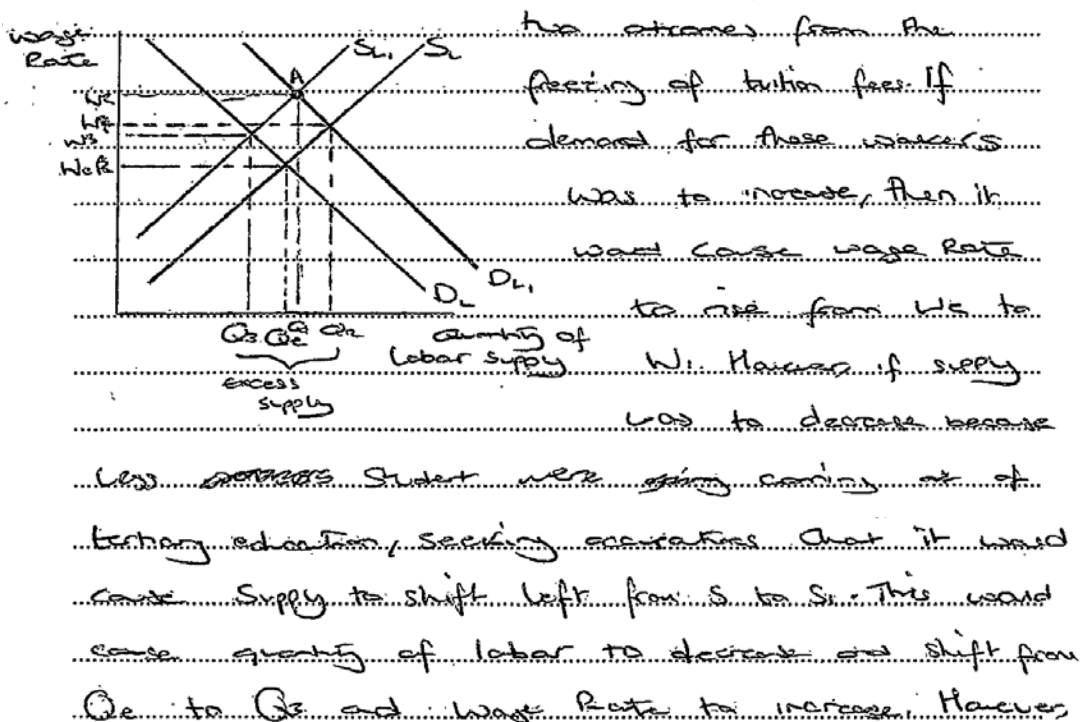 wage
Rate
SL1
SL
A
W2
W1
W3
We
DL
DL1
Q3 Qe Q Q2
Quantity of
labar supply
excess
supply
two outcomes from the
freezing of tuition fees. If
demand for these workers
was to increase, then it
would cause wage Rate
to rise from We to
W1. However, if supply
was to decrease because
Less Student were coming out of
tertiary education, seeking occupations that it would
cause Supply to shift left from S to S1. This would
cause quantity of labar to decrease and shift from
Qe to Q3 and Wage Rate to increase, However,